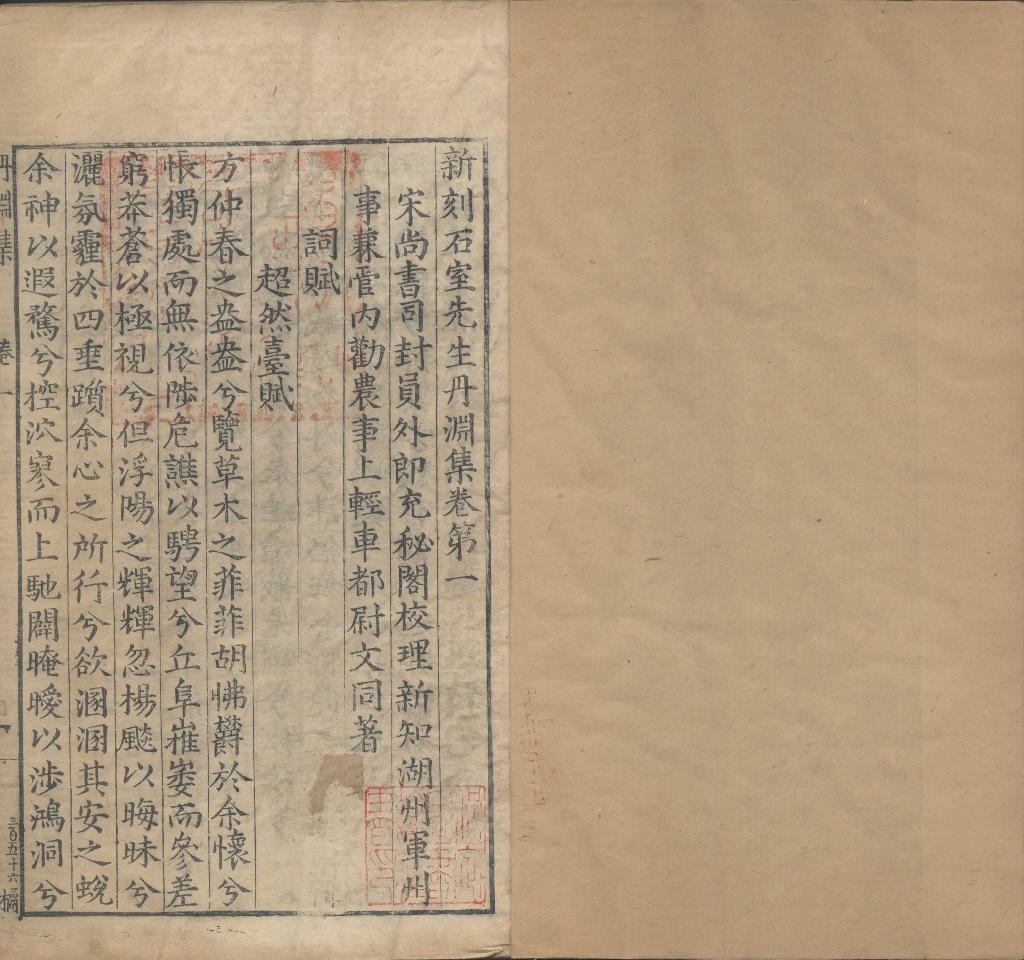 新刻石室先生丹淵集卷第一
宋尚書司封員外郎充秘閣校理新知湖州軍州
事蒹管内勸農事上輕車都尉文同著
詞賦
超然臺賦
方仲春之盎盎兮覽草木之菲菲胡怫欝於余懷兮
悵獨處而無依陟危譙以騁望兮丘阜嶉崣而參差
窮莽蒼以極視兮但浮陽之輝輝忽楊飈以晦昧兮
灑氛霾於四垂躓余心之所行兮欲溷溷其安之蛻
余神以遐騖兮控泬寥而上馳闢晻曖以涉鴻洞兮
丹淵集
卷一
一
三百五十六